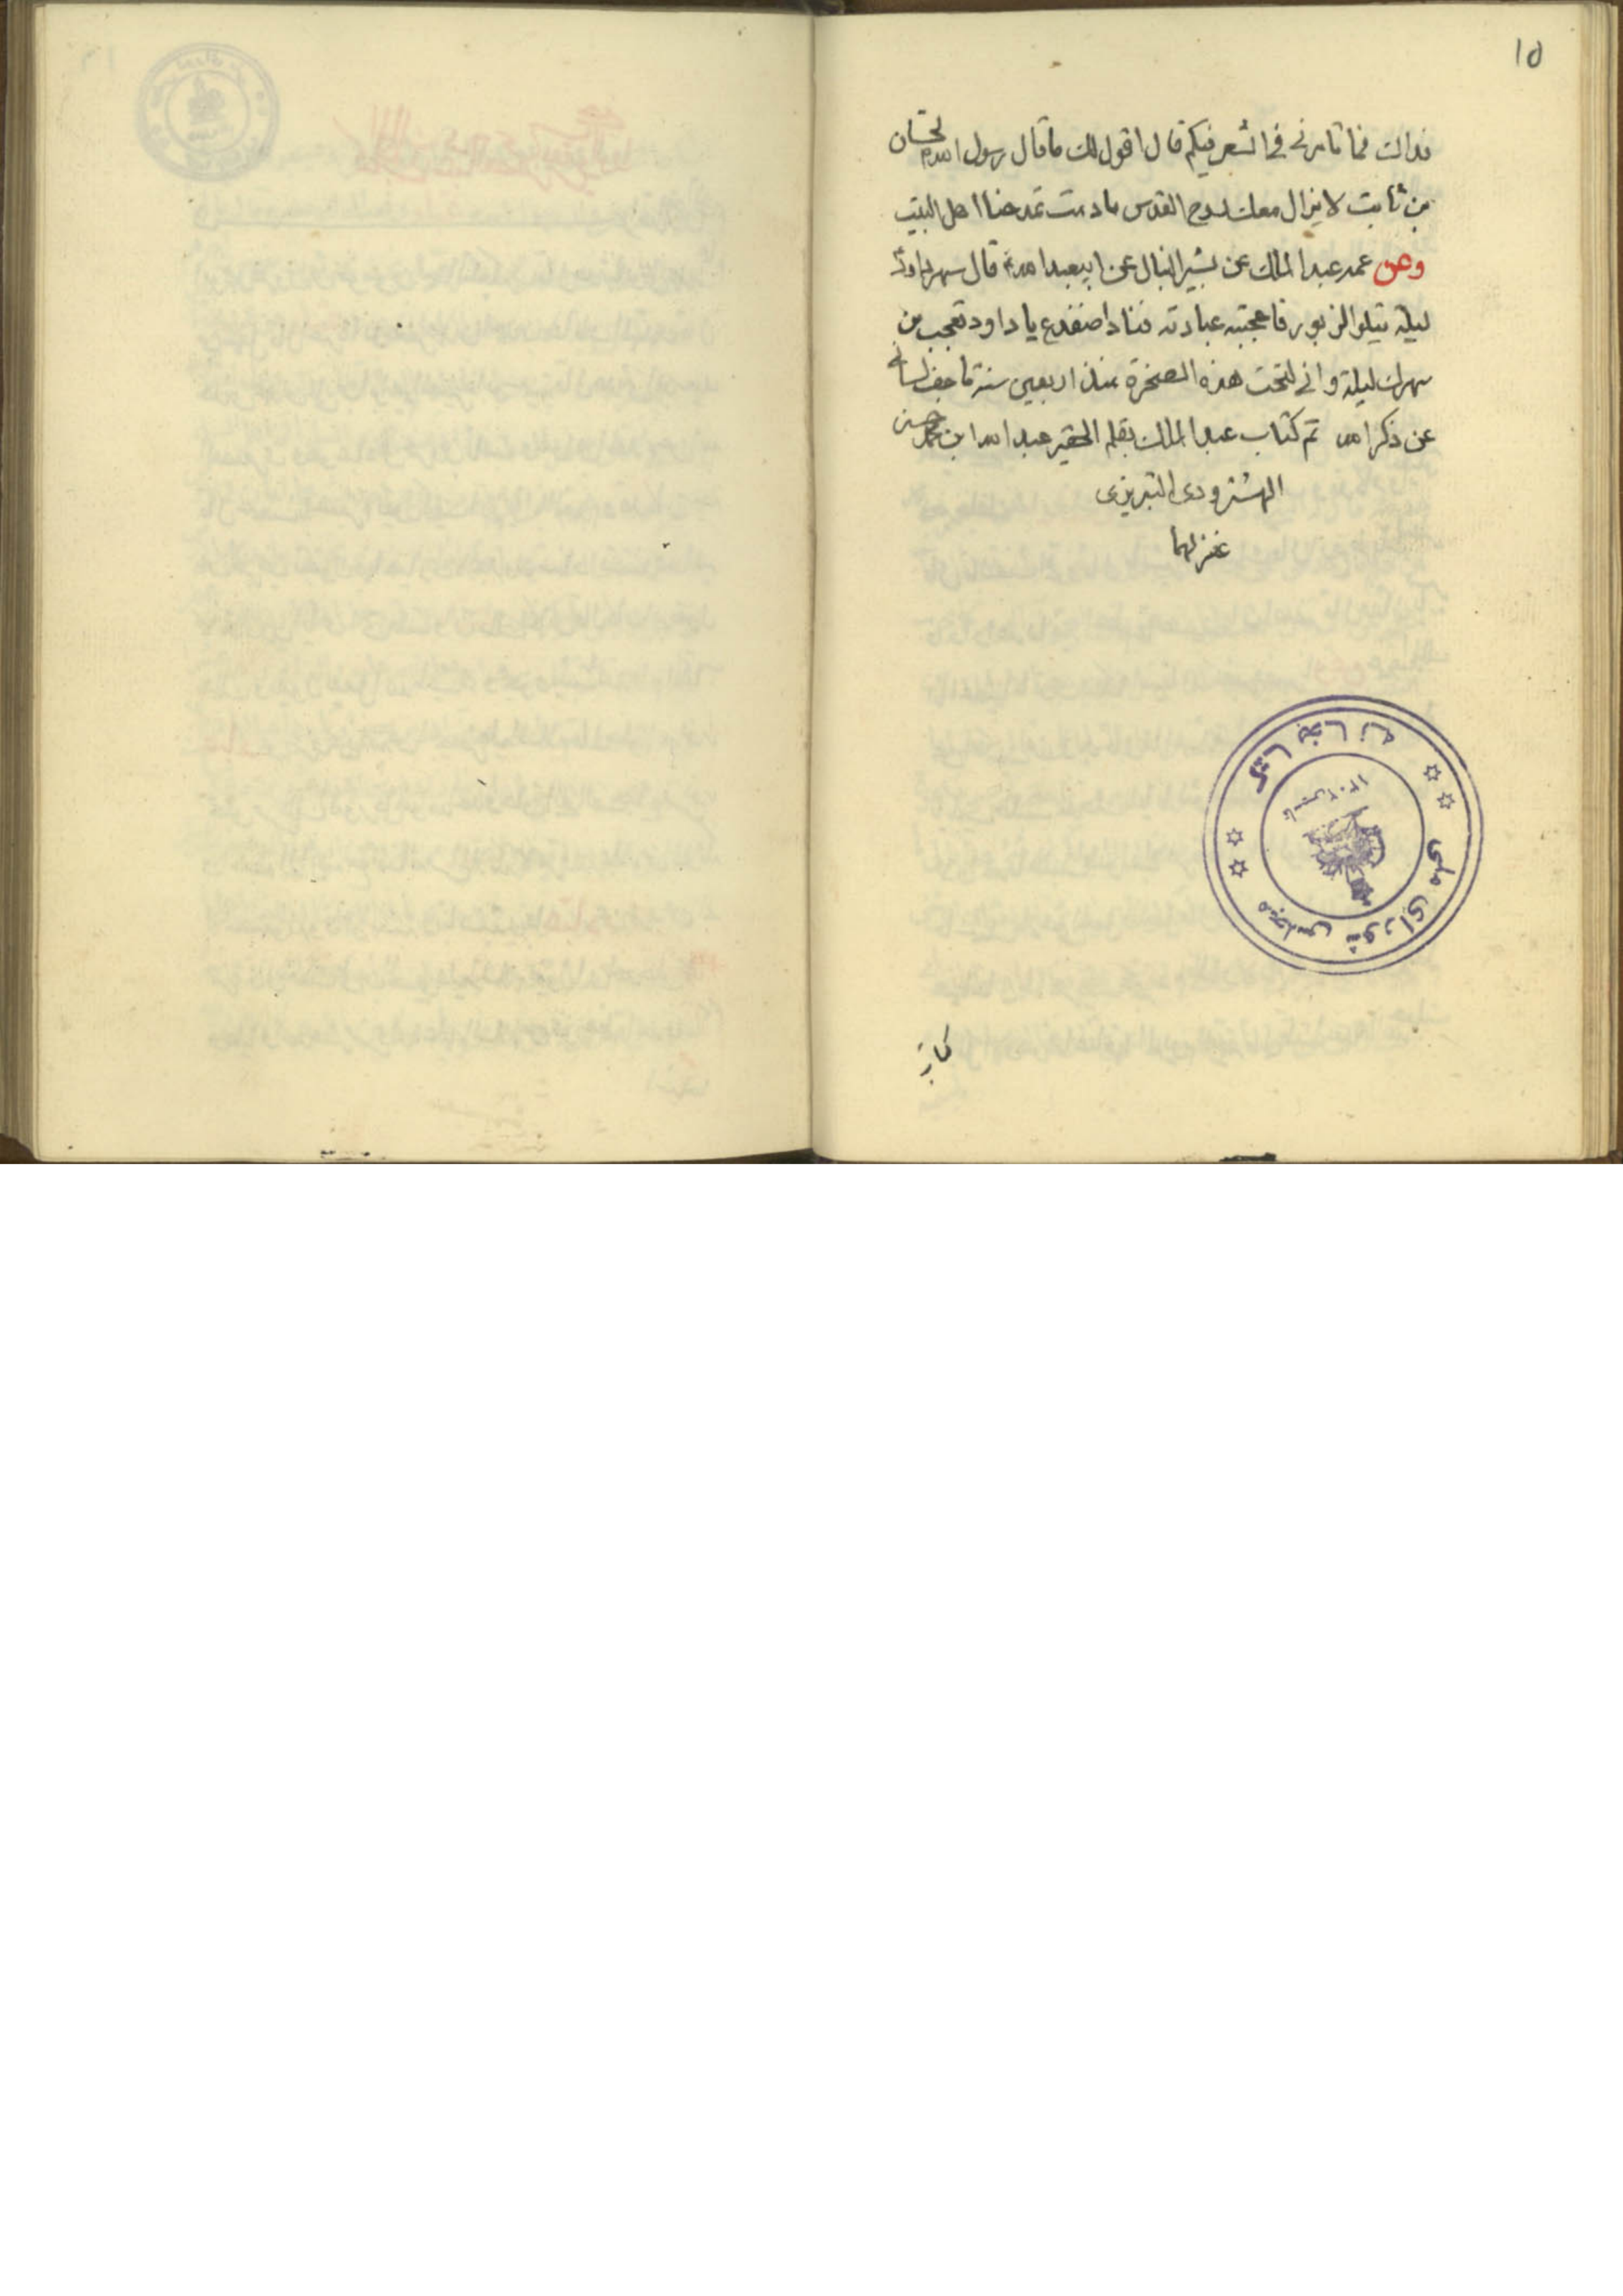 ١٥
فداك فما تامرنى فى الشعر فيكم قال اقول لك ما قال رسول الله ص لحسان
بن ثابت لا يزال معك روح القدس ما دمت تمدحنا اهل البيت
وعن عمه عبد الملك عن بشير النبال عن ابيعبد الله ع قال سهر داود
ليلة يتلوا الزبور فاعجبته عبادته فنادا ضفدع يا داود تعجب من
سهرك ليلة وانى لتحت هذه الصخرة منذ اربعين سنة ما جف لسانى
عن ذكر الله تم كتاب عبد الملك بقلم الحقير عبد الله ابن محمد حسن
الهشترودى التبريزى
غفر لهما
كتابخانه
مجلس شوراى ملى
تاسيس ١٣٠٢
كتاب